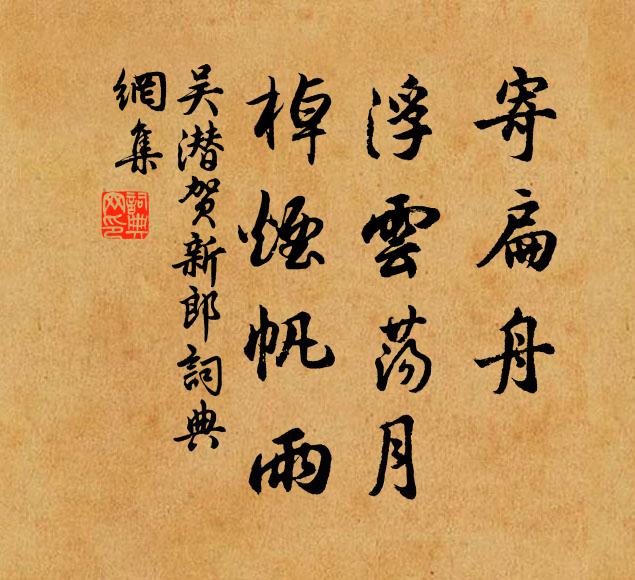 寄扁舟
浮雲荡月
棹煙帆雨
吴潜贺新郎詞典
網集
詞典
网印